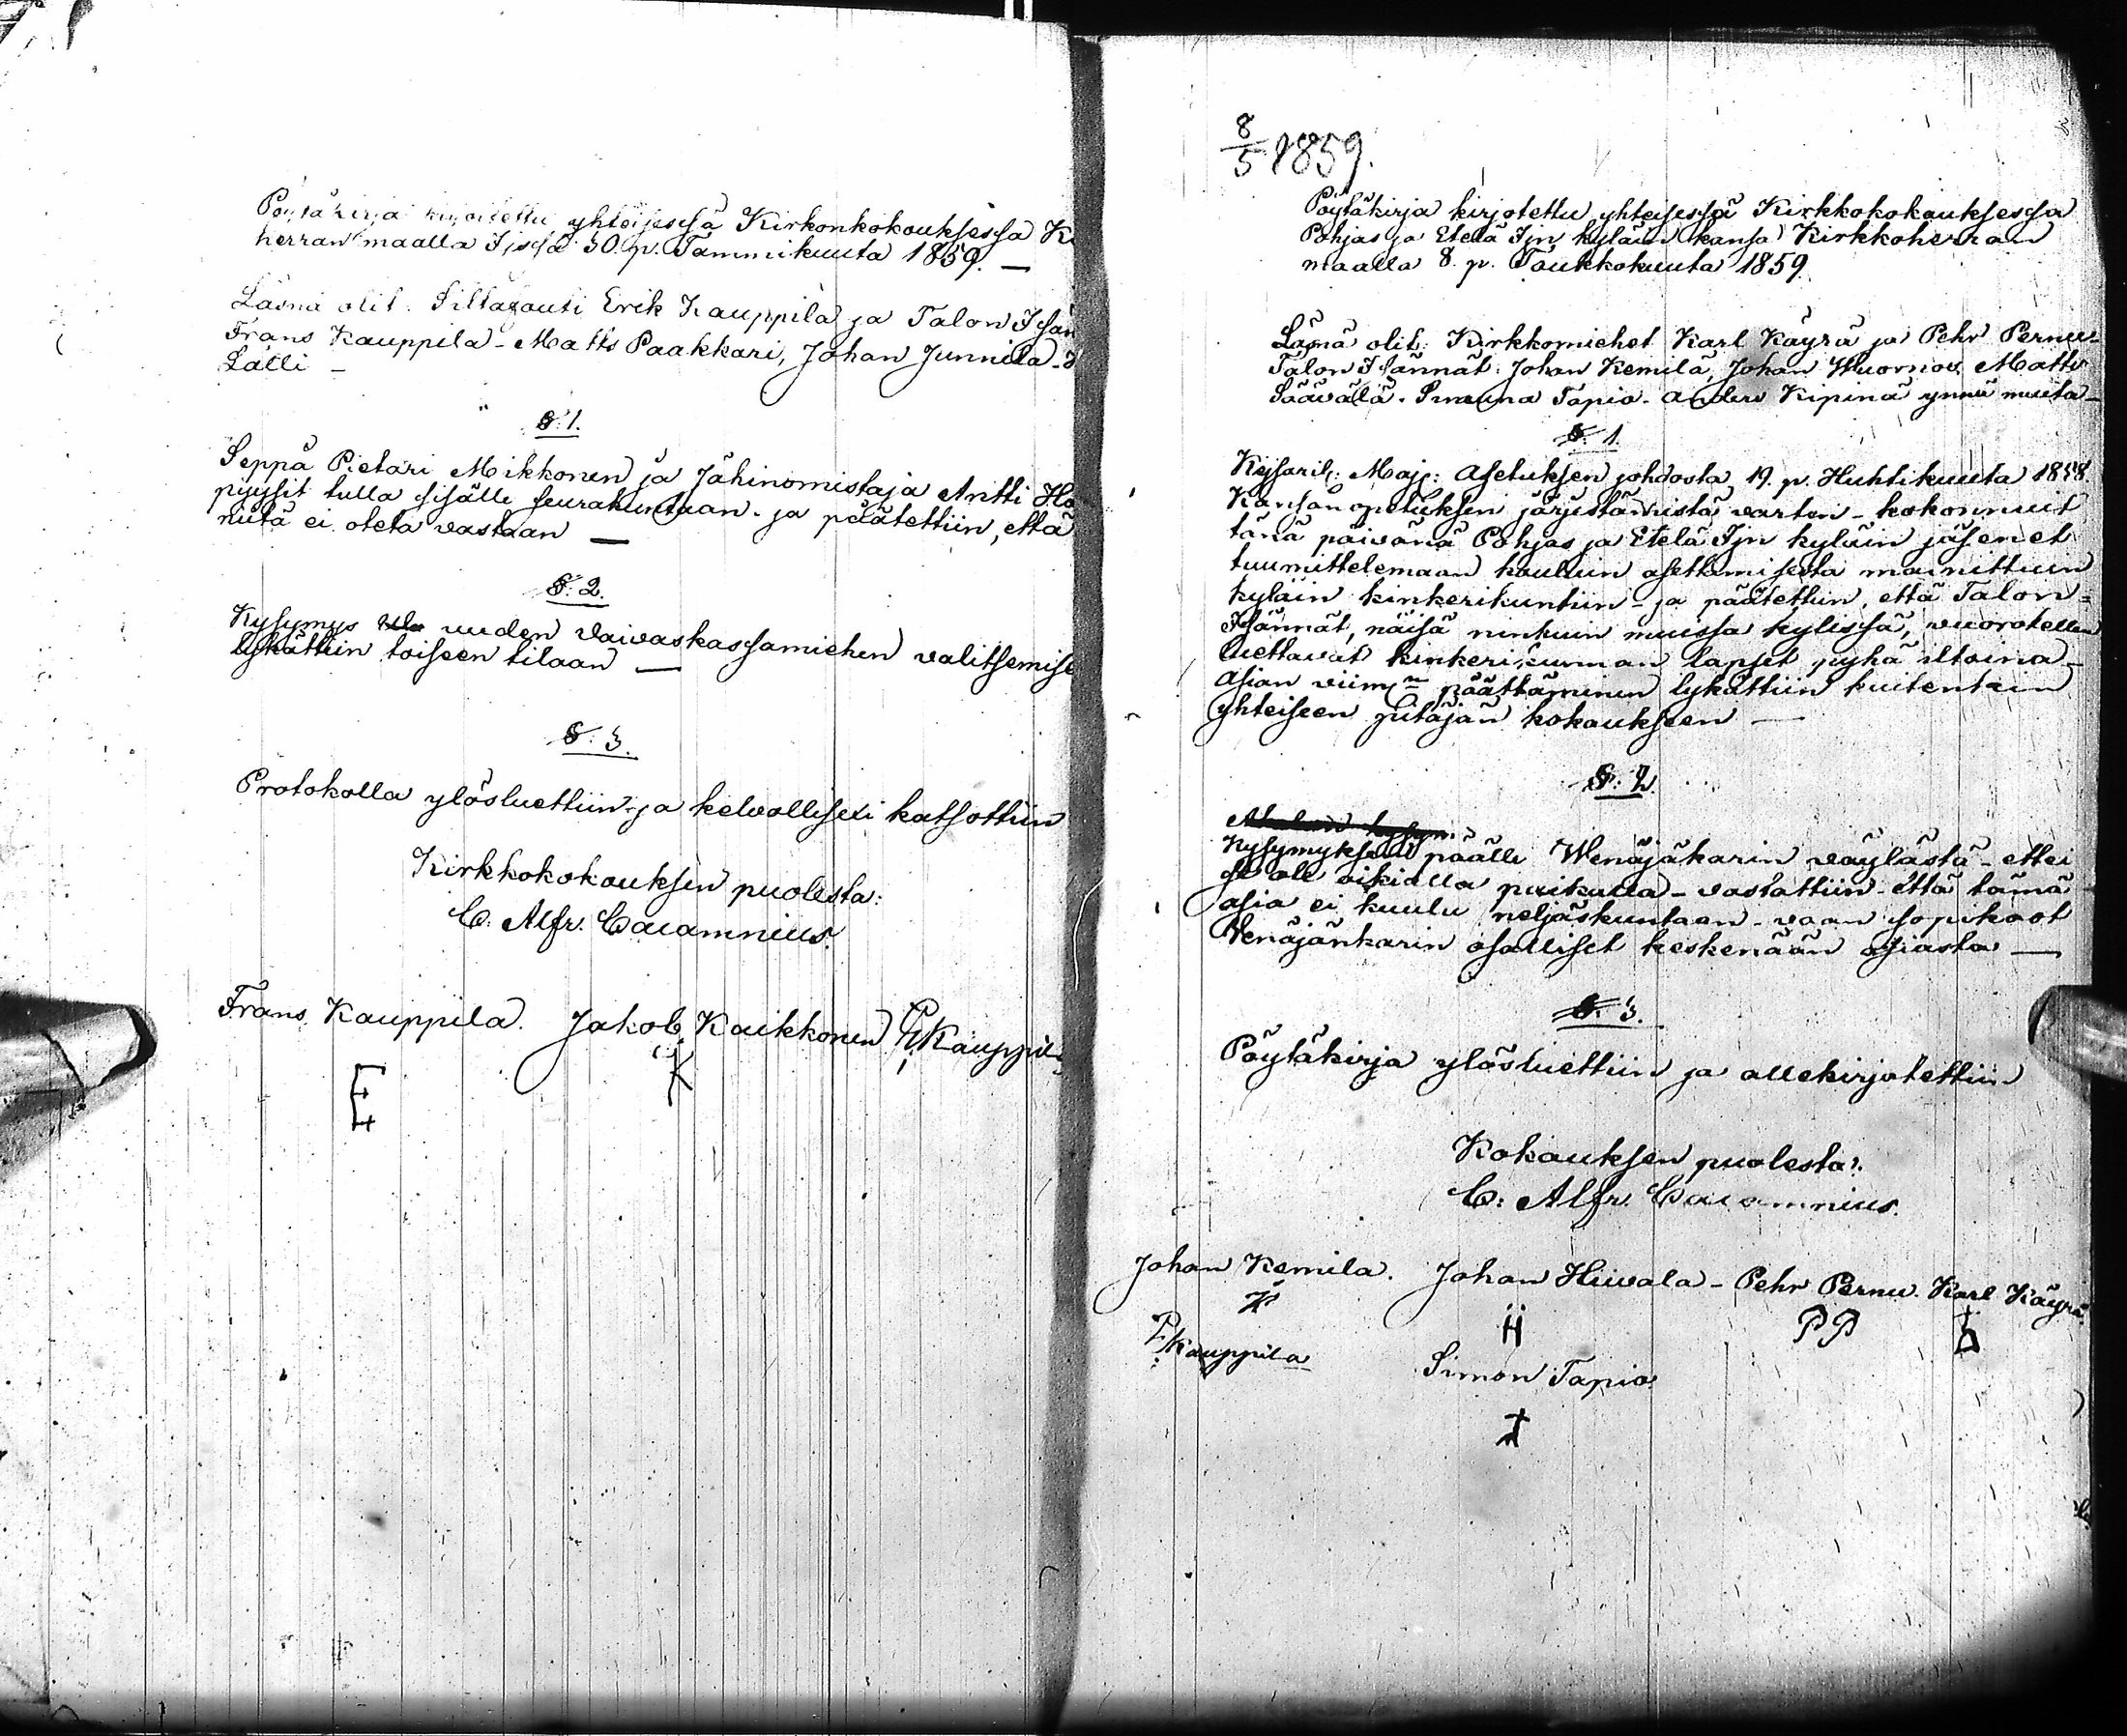 Pöytäkirja kirjoitettu yhteisessä Kirkonkokouksessa Ki
herran maalla Ijssä 30. p. Tammikuuta 1859. —
Läsnä olit. Siltavouti Erik Kauppila ja Talon Isän
Frans Kauppila - Matts Paakkari, Johan Junnila -
Lalli -
§. 1.
Seppä Pietari Mikkonen ja Jahinomistaja Antti
pyysit tulla sisälle seurakuntaan - ja päätettiin, että
niitä ei oteta vastaan —
§. 2.
Kysymys uuden Vaivaskassamiehen valitsemise
lykättiin toiseen tilaan —
§. 3.
Protokolla ylösluettiin ja kelvollisexi katsottiin
Kirkkokokouksen puolesta:
C. Alfr. Cajamnius.
Frans Kauppila. Jakob Kaikkonen Kauppila
K
8/5 1859.
Pöytäkirja kirjotettu yhteisessä Kirkkokokouksessa
Pohjas ja Etelä Ijn kyläin kansa Kirkkoherran
maalla 8. p. Toukkokuuta 1859.
Läsnä olit: Kirkkomiehet Karl Käyrä ja Pehr Pernu-
Talon Isännät: Johan Kemilä, Johan Matts
Säävälä. Simuna Tapio. Anders Kipinä ynnä muita -
§. 1.
Keisaril: Maj: Asetuksen johdosta 19. p. Huhtikuuta 1858.
Kansan opetuksen järjestämistä varten - kokonnuit
tänä päivänä Pohjas ja Etelä Ijn kyläin jäsenet
tuumittelemaan kouluin asettamisesta mainittuin
kyläin kinkerikuntiin - ja päätettiin, että Talon=
Isännät, näisä ninkuin muissa kylissä, vuorotellen
luettavat kinkerikunnan lapset pyhä iltoina -
Asian viimen päättäminen lykättiin kuitenkin
yhteiseen pitäjän kokoukseen —
§. 2.
Kysymyksen päälle Wenäjäkarin väylästä - ettei
se ole oikialla paikalla - vastattiin - että tämä
asia ei kuulu neljäskuntaan - vaan sopikoot
Venäjänkarin osalliset keskenään asiasta —
§. 3.
Pöytäkirja ylösluettiin ja allekirjotettiin
Kokouksen puolesta:
C: Alfr. Cajamnius.
Johan Kemila. Johan Hiivala - Pehr Pernu. Karl Käyrä
H PP
Kauppila
Simon Tapio